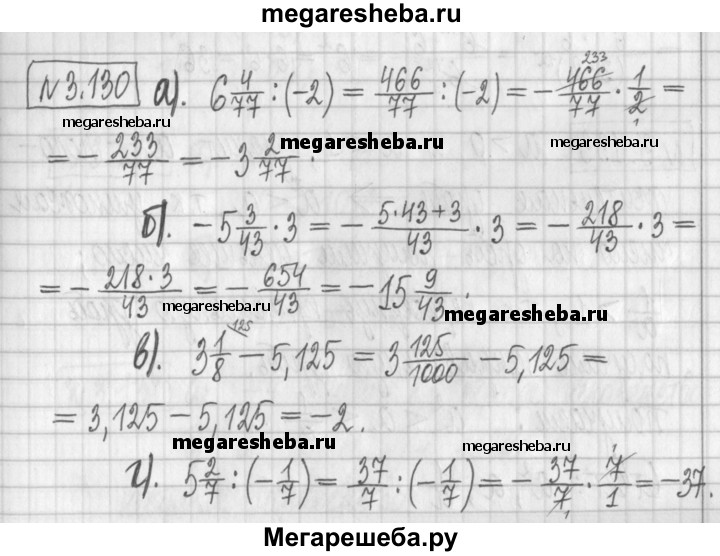 megaresheba.ru
N3.130 а). 6 4/77 : (-2) = 466/77 : (-2) = - 466/77 233 · 1/2 1 =
megaresheba.ru megaresheba.ru megaresheba.ru
= - 233/77 = -3 2/77.
б). -5 3/43 · 3 = - 5·43+3/43 · 3 = - 218/43 · 3 =
= - 218·3/43 = - 654/43 = -15 9/43.
megaresheba.ru megaresheba.ru
в). 3 1/8 125 - 5,125 = 3 125/1000 - 5,125 =
= 3,125 - 5,125 = -2.
megaresheba.ru megaresheba.ru
г). 5 2/7 : (-1/7) = 37/7 : (-1/7) = - 37/7 1 · 7/1 1 = -37.
Мегарешеба.ру